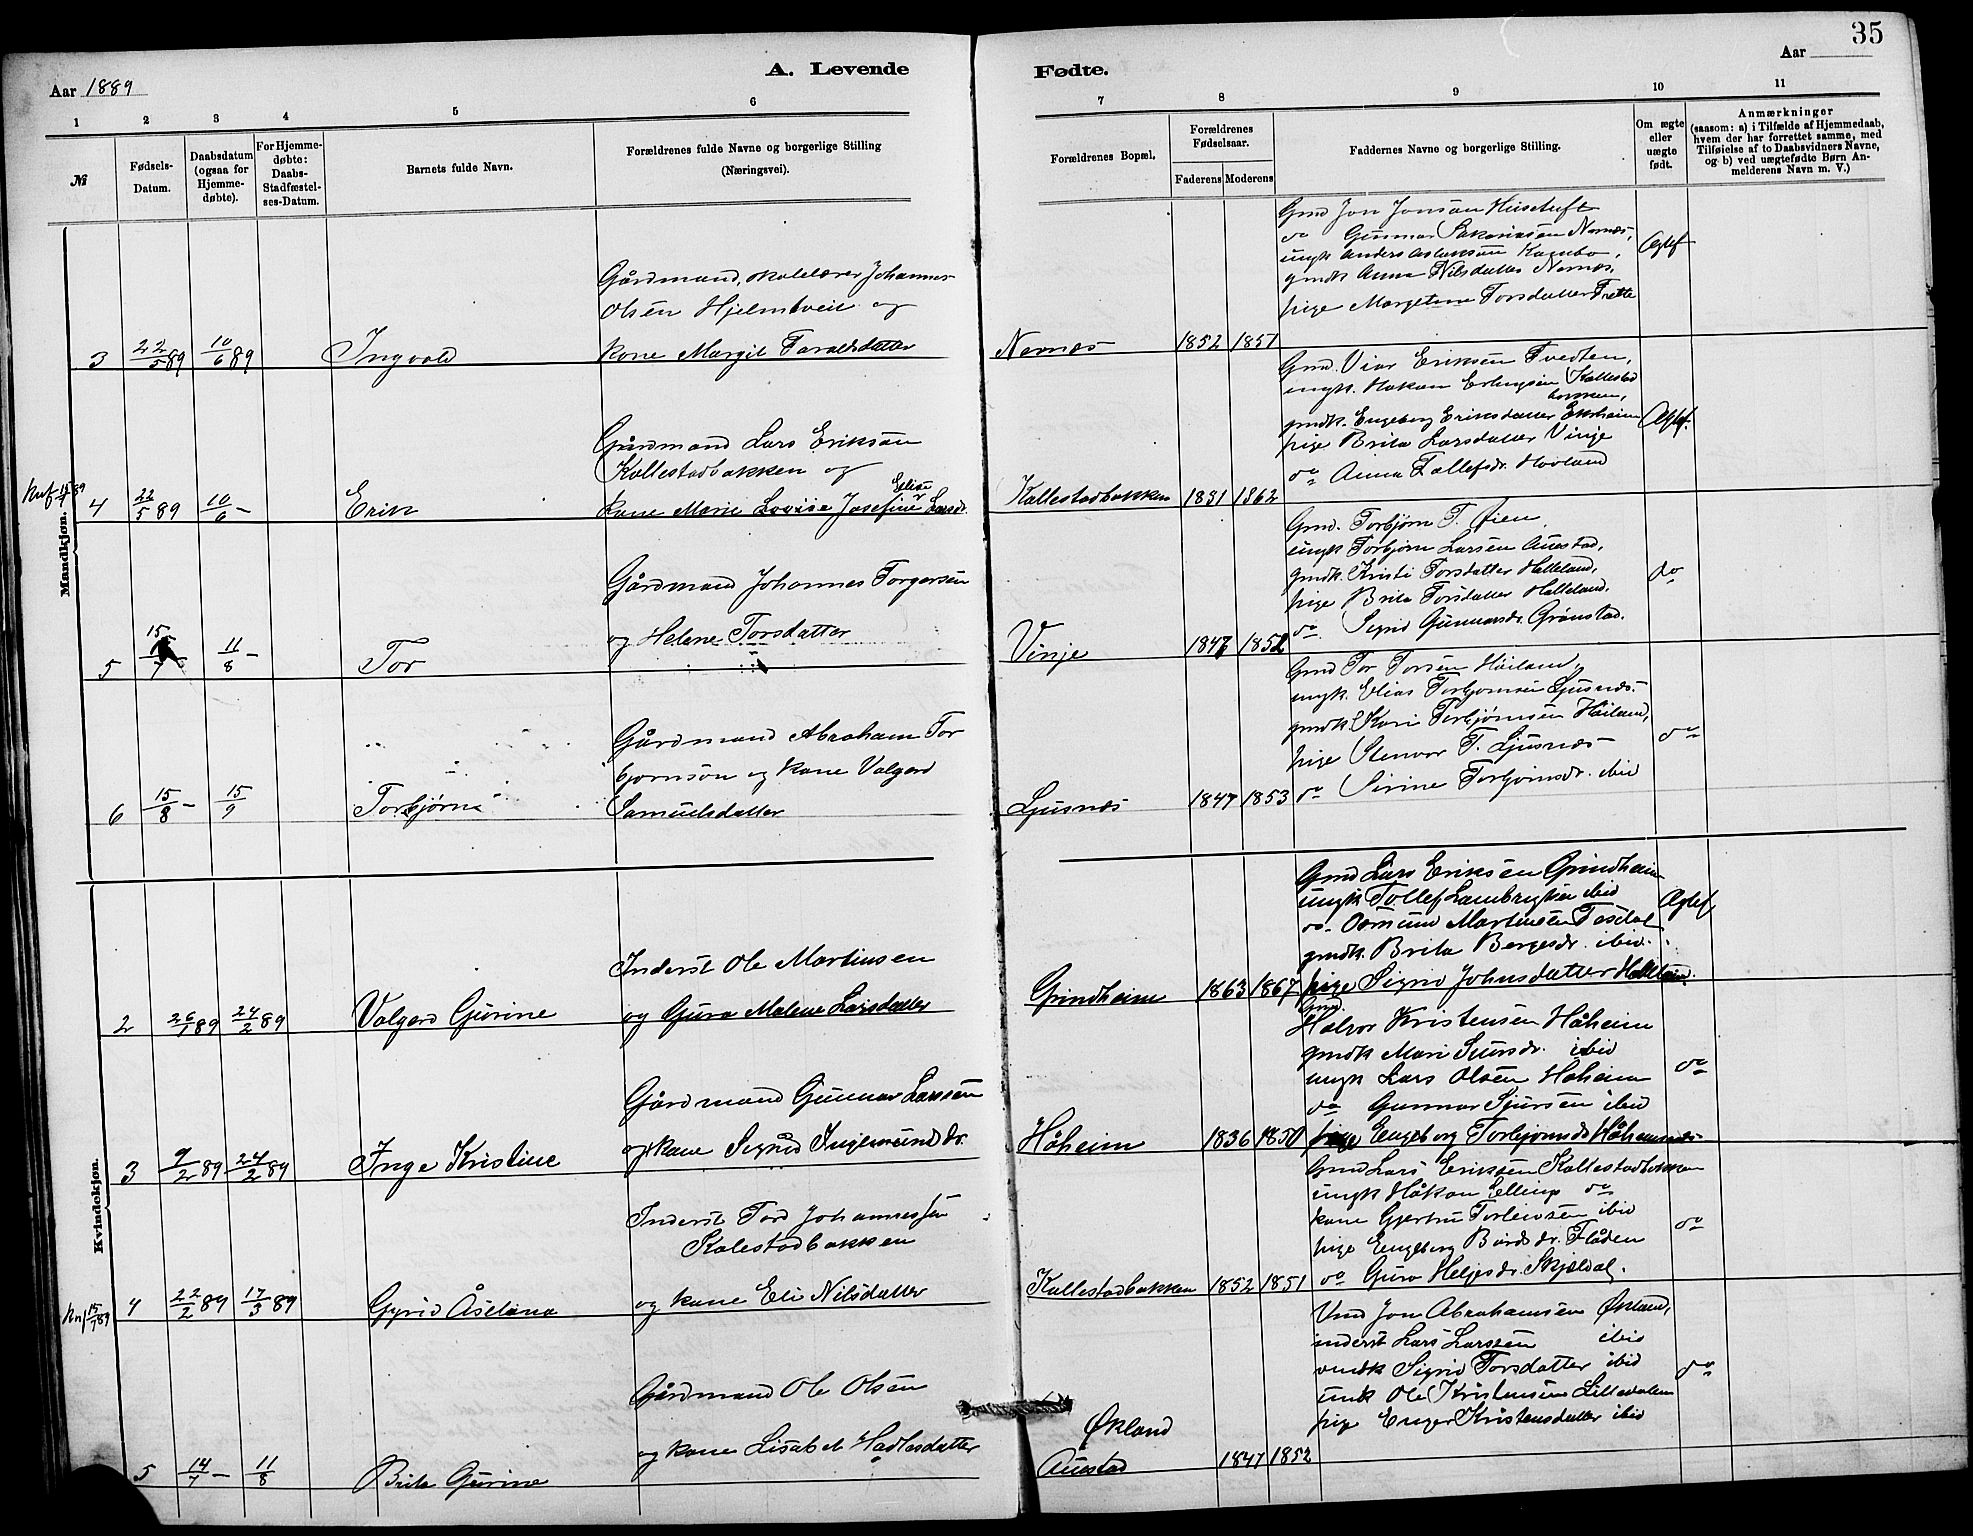 35
Aar 1889
A. Levende
Fødte.
Aar
1 2 3 4 5 6 7 8 9 10 11
№
Fødsels-
Datum.
Daabsdatum
(ogsaa for
Hjemme-
døbte).
For Hjemme-
døbte:
Daabs-
Stadfæstel-
ses-Datum.
Barnets fulde Navn.
Forældrenes fulde Navne og borgerlige Stilling
(Næringsvei).
Forældrenes Bopæl.
Forældrenes
Fødselsaar.
Faderens Moderens
Faddernes Navne og borgerlige Stilling.
Om ægte
eller
uægte
født.
Anmærkninger
(saasom: a) i Tilfælde af Hjemmedaab,
hvem der har forrettet samme, med
Tilføielse af to Daabsvidners Navne,
og b) ved uægtefødte Børn An-
melderens Navn m. V.)
Mandkjøn.
3 22/5 89 10/6 89 Ingvald
Gårdmand, skolelærer Johannes
Olsen Hjelmtveit og
kone Margit Taraldsdatter
Nernæs 1852 1851
Gmd Jon Jonsøn
do Gunnar Sakariasøn Nernæs,
ungk Anders Aslaksøn
gmdk Anna Nilsdatter Nernæs.
pige Margetene Torsdatter Trette
Ægtef
4 22/5 89 10/6 - Erik
Gårdmand Lars Eriksøn
Kallestadbakken og
Elise
kone Marie Lovise Josefine Larsdr.
Kallestadbakken 1831 1862
Gmd. Vier Eriksøn Tvedten,
ungk. Hakon Erlingsøn Kallestad
bakken,
gmdk. Engeborg Eriksdatter
pige Brita Larsdatter Vinje
do Anna Tollefsdr. Hovland
Ægtef.
5 15/7 11/8 - Tor
Gårdmand Johannes Torgersøn
og Helene Torsdatter
Vinje 1847 1852
Gmd. Torbjørn T. Øien,
ungk Torbjørn Larsen Auestad,
gmdk. Kristi Torsdatter Helleland,
pige Brita Torsdatter Helleland.
do. Sigrid Gunnarsdr. Grønstad.
do
6 15/8 - 15/9 Torbjørn
Gårdmand Abraham Tor
bjørnsøn og kone Valgerd
Samuelsdatter
Ljusnæs 1847 1853
Gmd Tor Torsen Håiland,
ungk. Elias Torbjørnsen Ljusnæs.
gmdk Kari Torbjørnsen Håiland,
pige Stenvor T. Ljusnæs
do Sirine Torbjørnsdr. ibid
do
Kvindekjøn.
2 26/1 89 24/2 89 Valgerd Gurine
Inderst Ole Martinsen
og Guro Malene Larsdatter
Grindheim 1863 1867
Gmd Lars Eriksen Grindheim
ungk Tollef Lambrigtsen ibid
do. Osmund Martinsen
gmdk. Brita Bergesdr. ibid.
pige Sigrid Johnsdatter
Ægtef
3 9/2 89 24/2 89 Inge Kristine
Gårdmand Gunnar Larsen
og kone Sigrid Ingemundsdr.
Håheim 1836 1850
Gmd.
Halvor Kristensen Håheim
gmdk Mari Sjursdr. ibid
ungk Lars Olsen Håheim
do Gunnar Sjursen ibid
pige Engeborg Torbjørnsdr Håheimsnæs
do
4 22/2 89 17/3 89 Gyrid Åselena
Inderst Tord Johannessen
Kalestadbakken
og kone Eli Nilsdatter
Kallestadbakken 1852 1851
Gmd Lars Eriksen Kallestadbakken
ungk Håkon Ellings do
kone Gjertru Torleivsen ibid
pige Engeborg Bårdsdr. Flåden
do Guro Heljesdr. Skjeldal.
do
5 14/7 - 11/8 Brita Gurine
Gårdmand Ole Olsen
og kone Lisabet Hadlesdatter
Økland
Auestad 1847 1852
Jon Abrahamsen Økland,
inderst Lars Larssen ibid
Sigrid Torsdatter ibid
unk Ole Kristensen Lilledalen
pige Enger Kristensdatter ibid
do